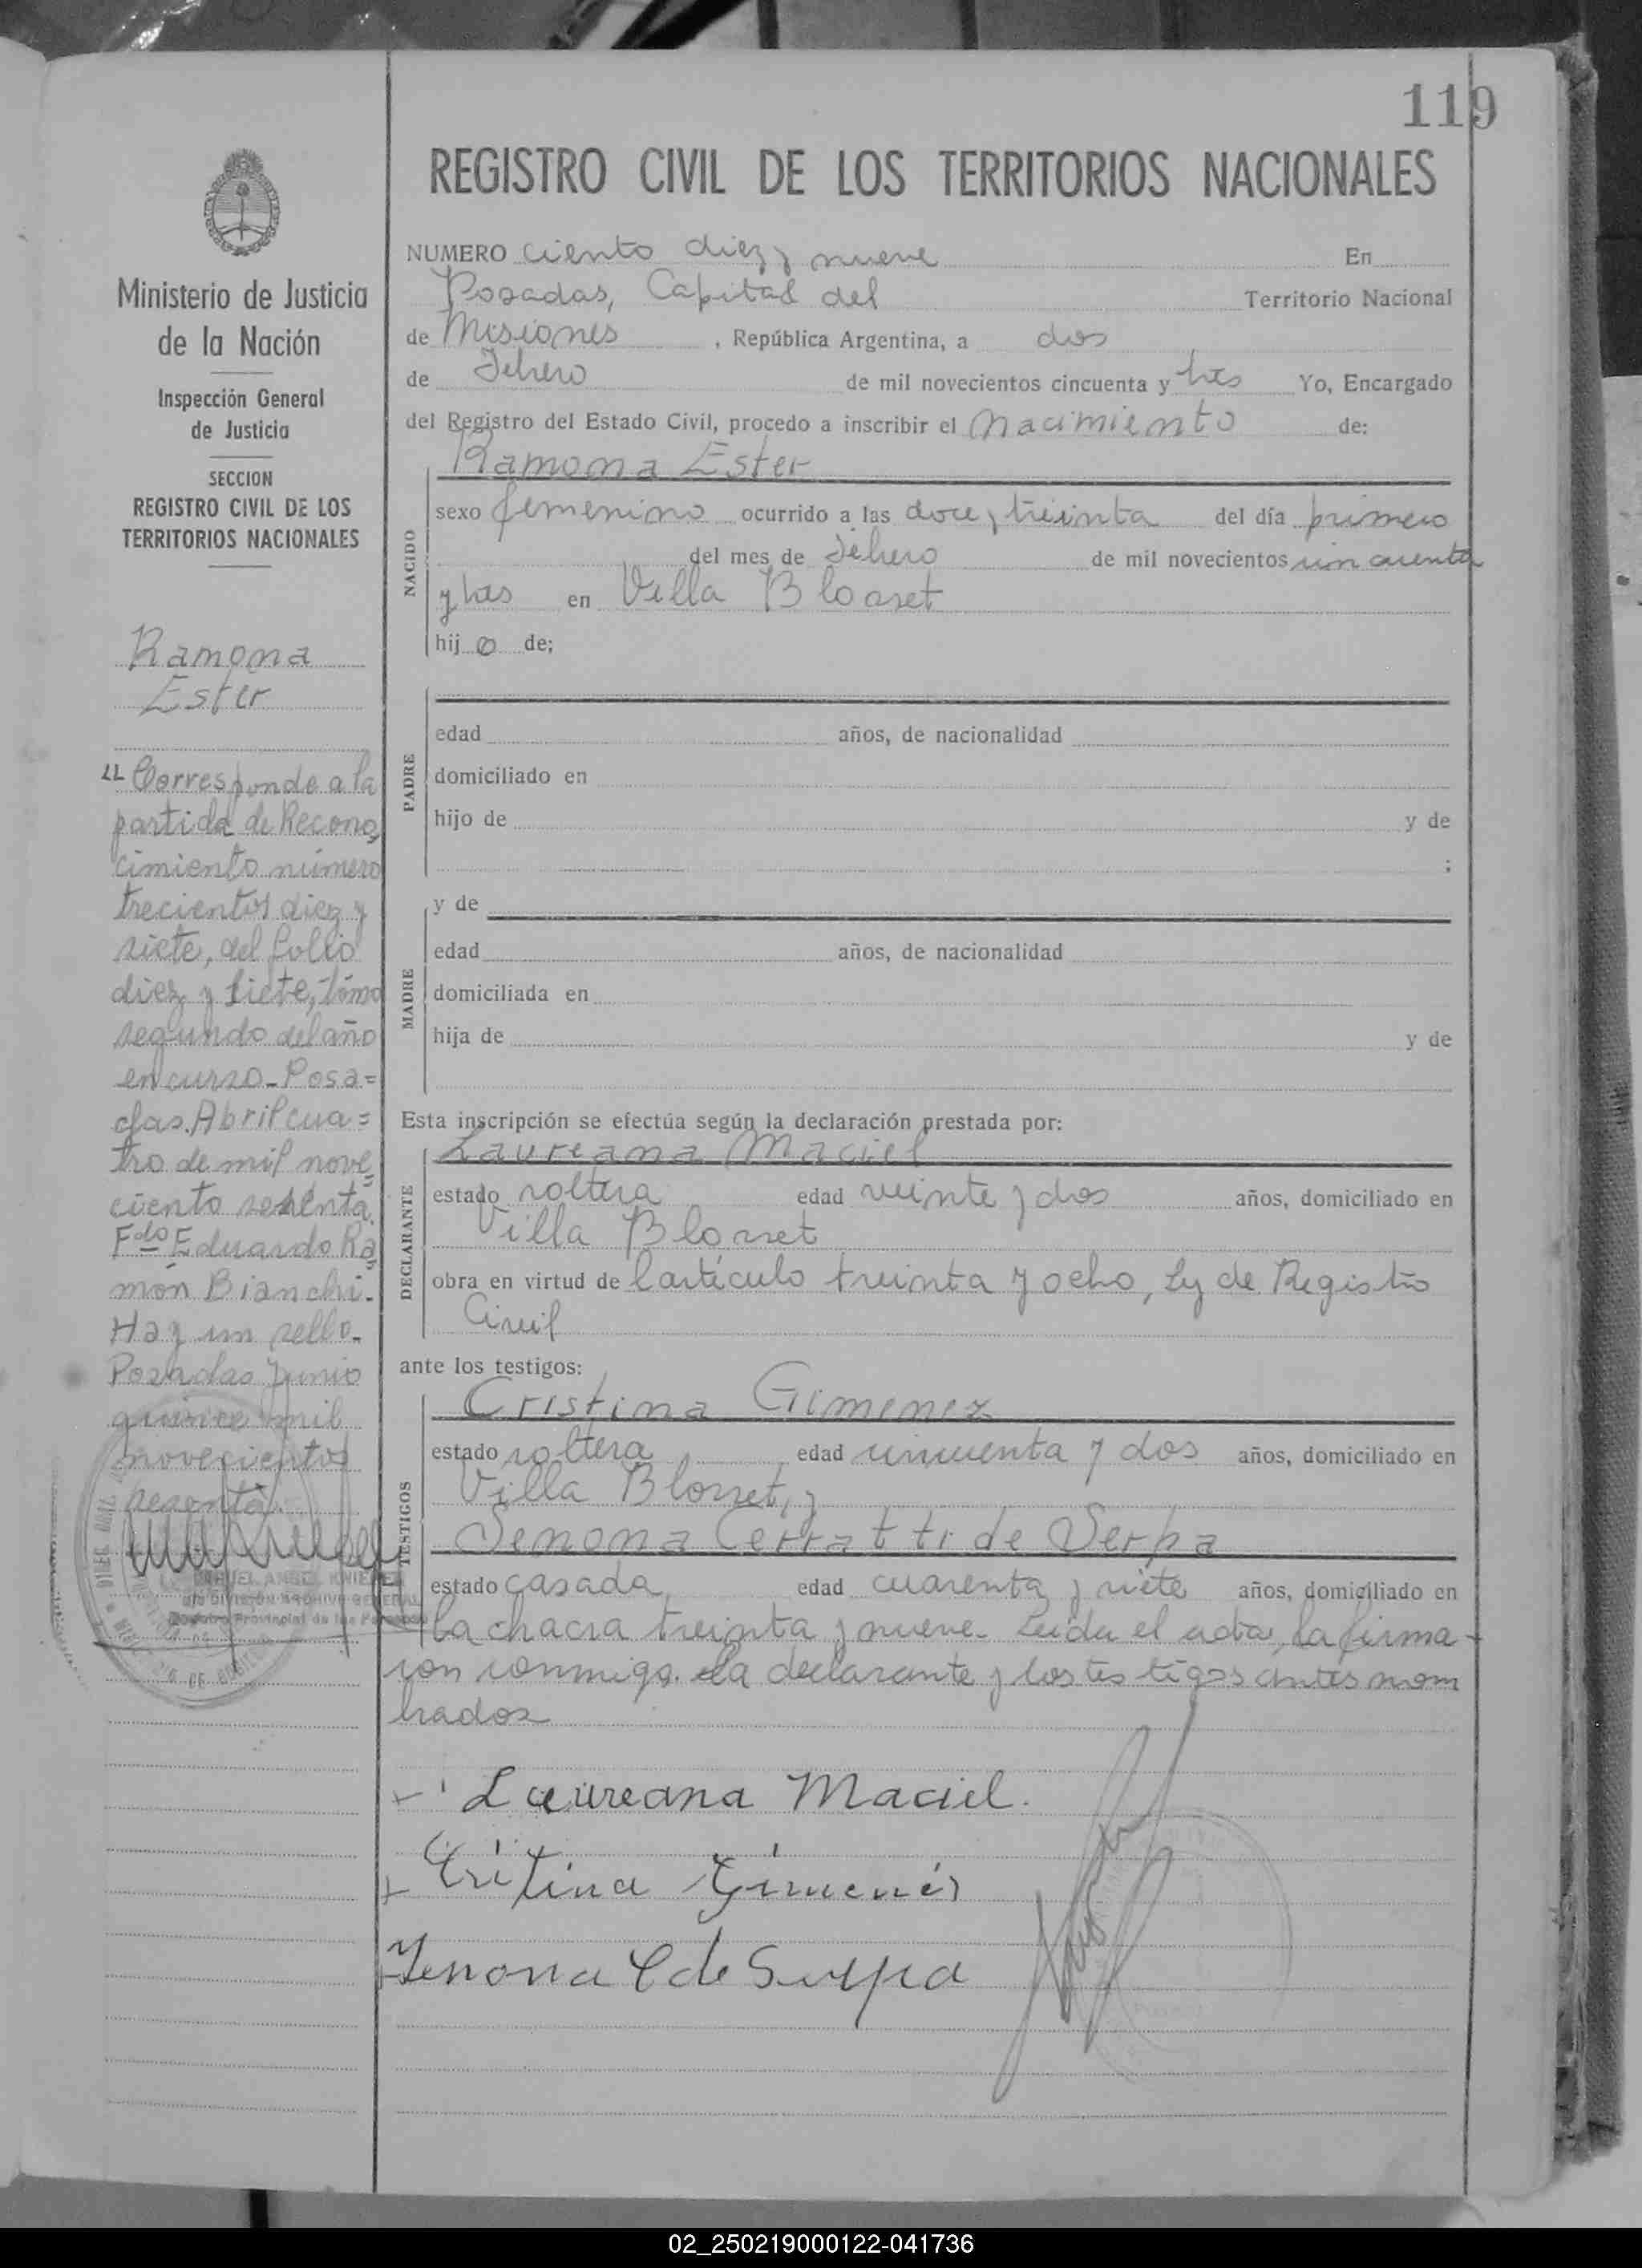 119
REGISTRO CIVIL DE LOS TERRITORIOS NACIONALES
Ministerio de Justicia
de la Nación
Inspección General
de Justicia
SECCION
REGISTRO CIVIL DE LOS
TERRITORIOS NACIONALES
Ramona
Ester
"Corresponde a la
partida de Recono
cimiento número
trecientos diez y
siete, del folio
diez y siete, tomo
segundo del año
en curso - Posa=
das. Abril cua=
tro de mil nove
ciento sesenta.
Fdo Eduardo Ra
món Bianchi.
Hay un sello.
Posadas Junio
quince mil
novecientos
sesenta.
NUMERO ciento diez y nueve En
Posadas, Capital del Territorio Nacional
de Misiones , República Argentina, a dos
de Febrero de mil novecientos cincuenta y tres Yo, Encargado
del Registro del Estado Civil, procedo a inscribir el nacimiento de:
Ramona Ester
NACIDO
sexo femenino ocurrido a las doce y treinta del día primero
del mes de Febrero de mil novecientos cincuenta
y tres en Villa Blosset
hij o de;
PADRE
edad años, de nacionalidad
domiciliado en
hijo de y de
;
MADRE
y de
edad años, de nacionalidad
domiciliada en
hija de y de
Esta inscripción se efectúa según la declaración prestada por:
Laureana Maciel
DECLARANTE
estado soltera edad veinte y dos años, domiciliado en
Villa Blosset
obra en virtud de l'artículo treinta y ocho, Ley de Registro
Civil
ante los testigos:
Cristina Gimenez
TESTIGOS
estado soltera edad cincuenta y dos años, domiciliado en
Villa Blosset, y
Senona Cerratti de Serpa
estado casada edad cuarenta y siete años, domiciliado en
la chacra treinta y nueve - Leida el acta, la firma-
ron conmigo la declarante y los testigos antes nom
brados
Laureana Maciel.
Critina Gimenés
Zenona C de Serpa
02_250219000122-041736